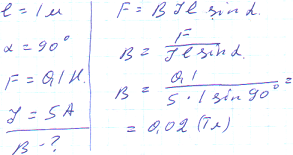 ℓ = 1 м
α = 90°
F = 0,1 Н.
J = 5А
B - ?
F = B J ℓ sin α.
B = F / J ℓ sin α.
B = 0,1 / 5 · 1 sin 90° =
= 0,02 (Тл)